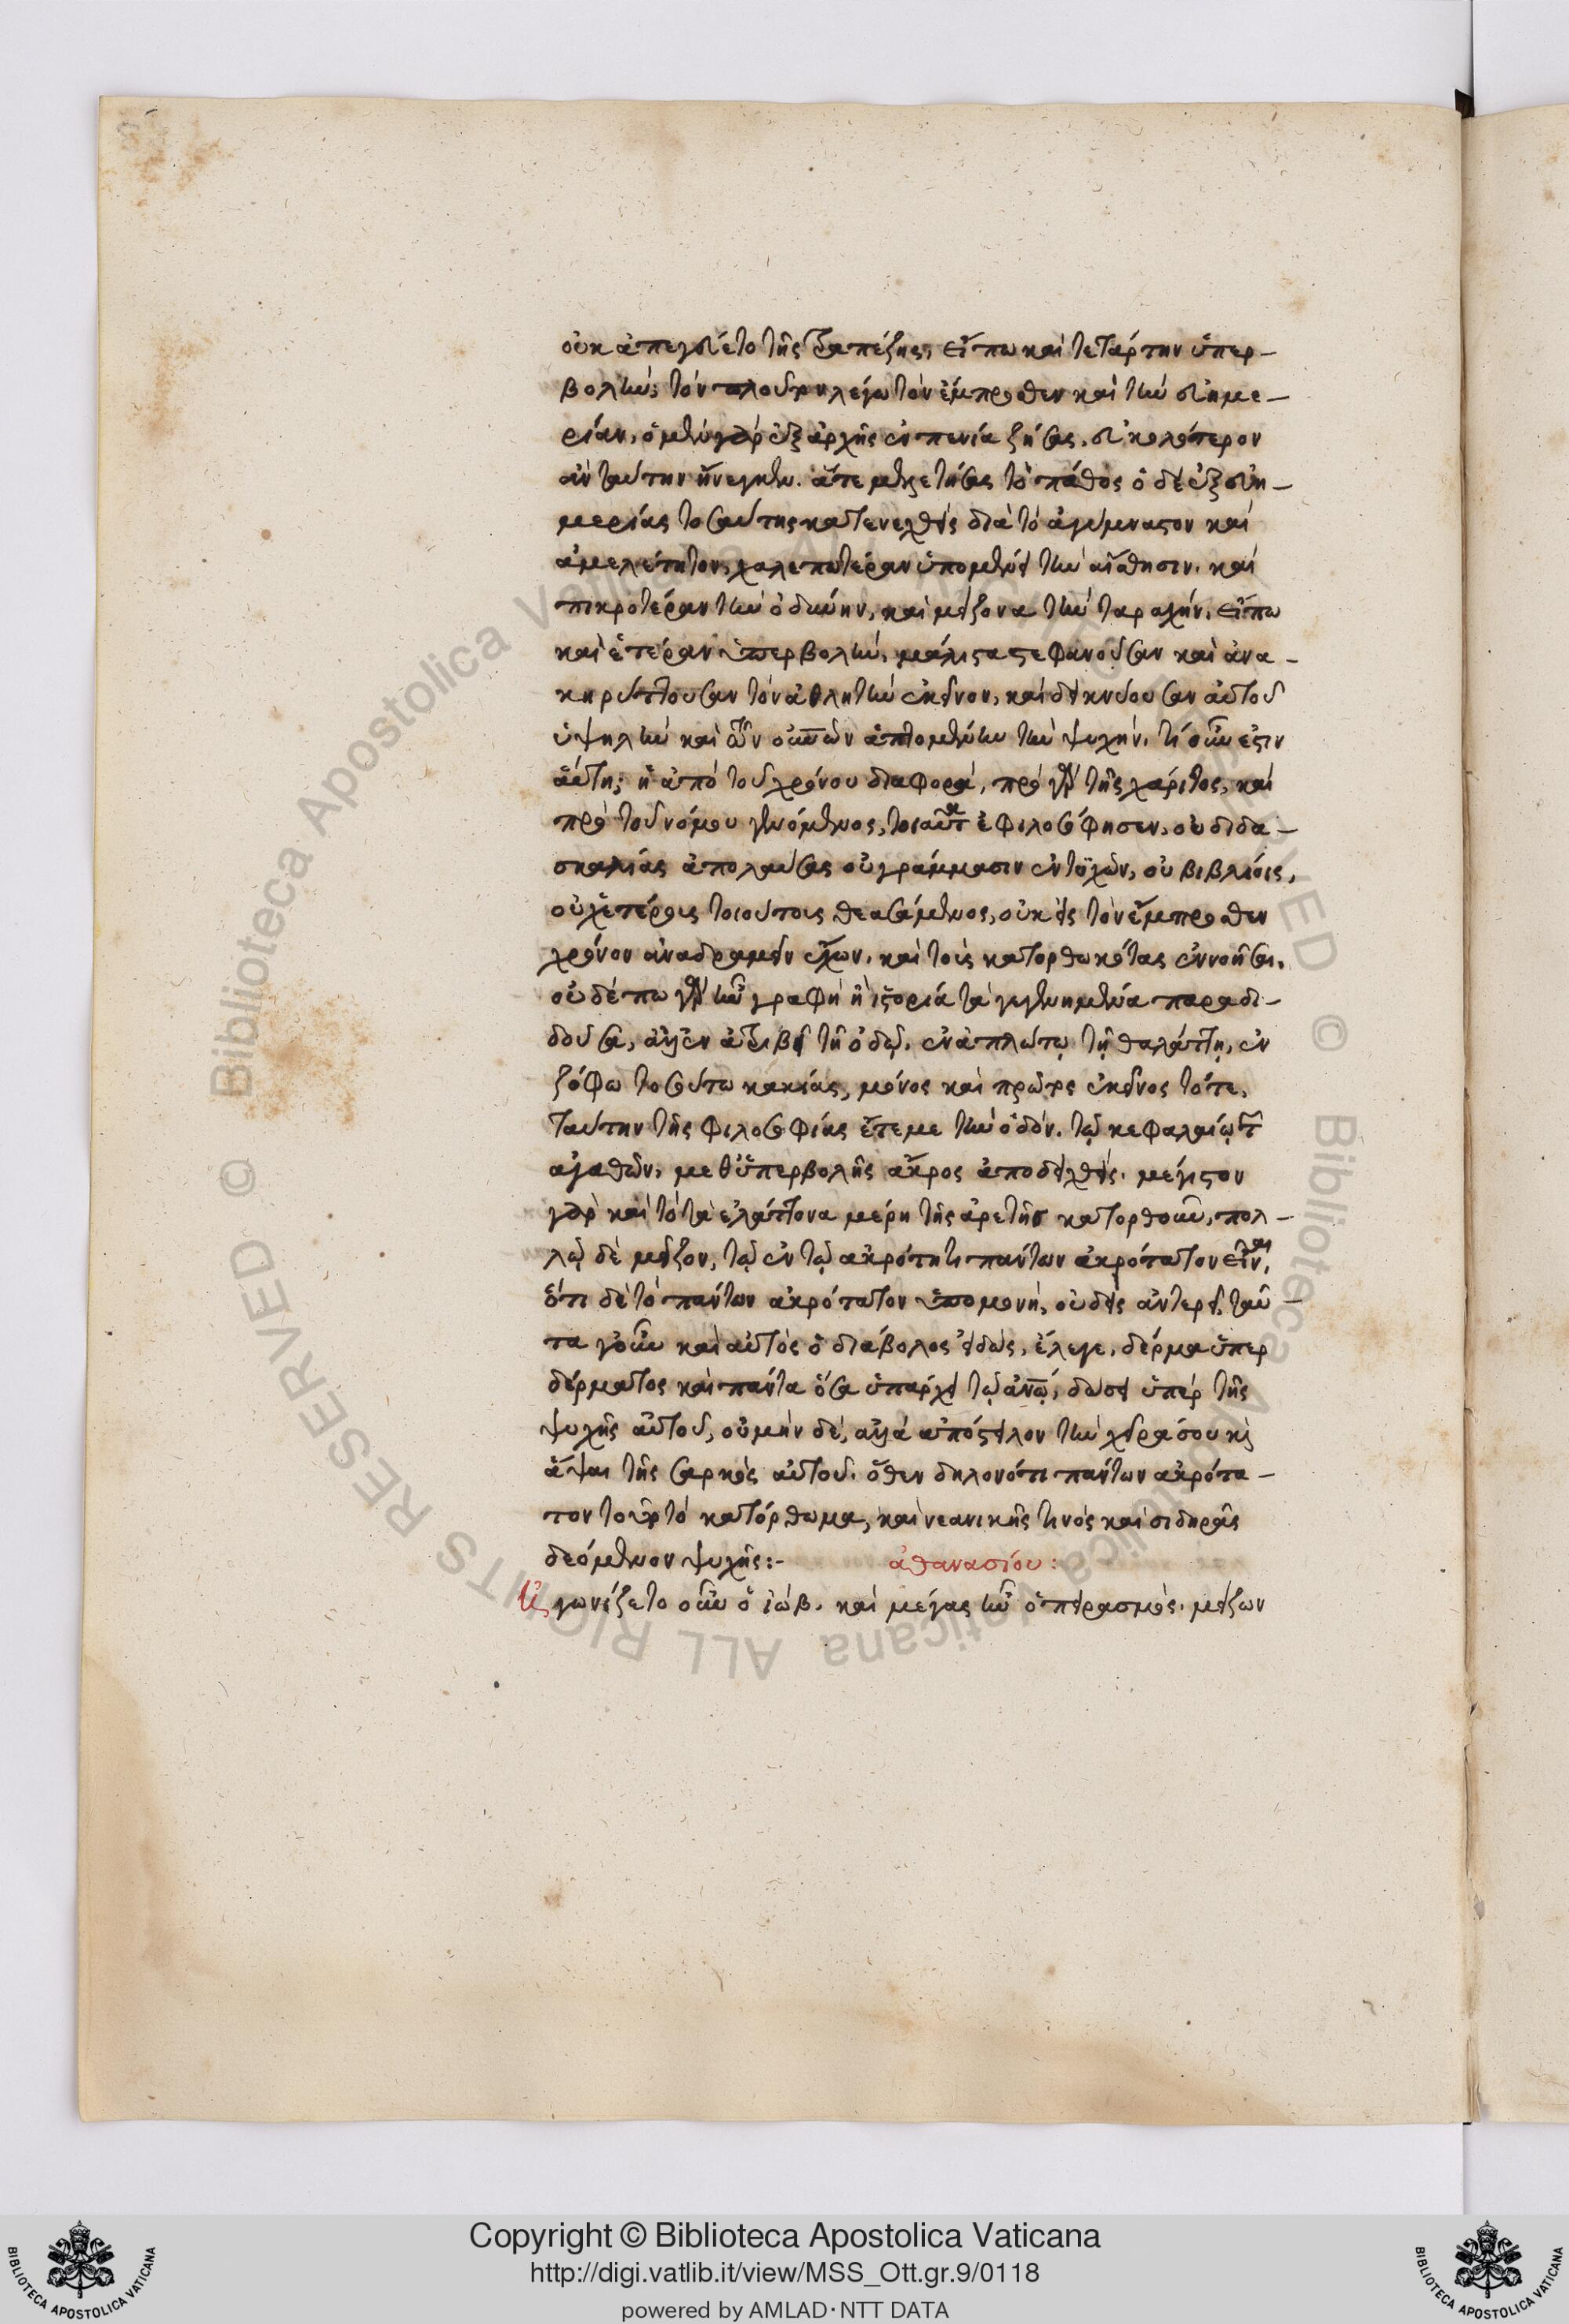 οὐκ ἀπεγεύετο τῆς τραπέζης, εἴπω καὶ τετάρτην ὑπερ-
βολήν; τὸν πλοῦτον λέγω τὸν ἔμπροσθεν καὶ τὴν εὐημε-
ρίαν, ὁ μὲν γὰρ ἐξ ἀρχῆς ἐν πενία ζήσας, εὐκολώτερον
ἂν ταύτην ἤνεγκεν. ἅτε μελετήσας τὸ πάθος ὁ δὲ ἐξ εὐη-
μερίας τοσαύτης κατενεχθεὶς διὰ τὸ ἀγύμναστον καὶ
ἀμελέτητον, χαλεπωτέραν ὑπομένει τὴν αἴσθησιν. καὶ
πικροτέραν τὴν ὀδύνην, καὶ μείζονα τὴν ταραχήν. εἴπω
καὶ ἑτέραν ὑπερβολὴν, μάλιστα στεφανοῦσαν καὶ ἀνα-
κηρύττουσαν τὸν ἀθλητὴν ἐκεῖνον, καὶ δεικνύουσαν αὐτοῦ
ὑψηλὴν καὶ τῶν οὐνῶν ἁπτομένην τὴν ψυχήν. τί οὖν ἐστιν
αὕτη; ἡ ἀπὸ τοῦ χρόνου διαφορά, πρὸ γὰρ τῆς χάριτος, καὶ
πρὸ τοῦ νόμου γενόμενος, τοιαῦτα ἐφιλοσόφησεν, οὐ διδα-
σκαλίας ἀπολαύσας οὐ γράμμασιν ἐντυχὼν, οὐ βιβλίοις,
οὐχ ἑτέροις τοιούτοις θεασάμενος, οὐκ εἰς τὸν ἔμπροσθεν
χρόνον ἀναδραμεῖν ἔχων. καὶ τοὺς κατορθωκότας ἐννοῆσαι.
οὐδέπω γὰρ ἦν γραφὴ ἢ ἱστορία τὰ γεγενημένα παραδι-
δοῦσα, ἀλλ' ἐν ἀτριβεῖ τῆ ὁδῷ. ἐν ἀπλώτῳ τῇ θαλάττῃ, ἐν
ζόφω τοσούτω κακίας, μόνος καὶ πρῶτος ἐκεῖνος τότε,
ταύτην τῆς φιλοσοφίας ἔτεμε τὴν ὁδόν. τῷ κεφαλαίῳ τῶν
ἀγαθῶν, μεθ' ὑπερβολῆς ἄκρος ἀποδειχθείς. μέγιστον
γὰρ καὶ τὸ τὰ ἐλάττονα μέρη τῆς ἀρετῆς κατορθοῦν, πολ-
λῷ δὲ μεῖζον, τῷ ἐν τῷ ἀκρότητι πάντων ἀκρότατον εἶναι,
ὅτι δὲ τὸ πάντων ἀκρότατον ὑπομονή, οὐδεὶς ἀντερεῖ, ταῦ-
τα γοῦν καὶ αὐτὸς ὁ διάβολος εἰδώς, ἔλεγε, δέρμα ὑπὲρ
δέρματος καὶ πάντα ὅσα ὑπάρχει τῷ ἀνῷ, δώσει ὑπὲρ τῆς
ψυχῆς αὐτοῦ, οὐ μὴν δὲ, ἀλλὰ ἀπόστειλον τὴν χεῖρα σου κὶ
ἅψαι τῆς σαρκὸς αὐτοῦ. ὅθεν δηλονότι πάντων ἀκρότα-
τον τοῦτο τὸ κατόρθωμα, καὶ νεανικῆς τινὸς καὶ σιδηρᾶς
δεόμενον ψυχῆς:- ἀθανασίου:
Ἠγωνίζετο οὖν ὁ ἰώβ. καὶ μέγας ἦν ὁ πειρασμός. μείζων
Copyright © Biblioteca Apostolica Vaticana
http://digi.vatlib.it/view/MSS_Ott.gr.9/0118
powered by AMLAD·NTT DATA